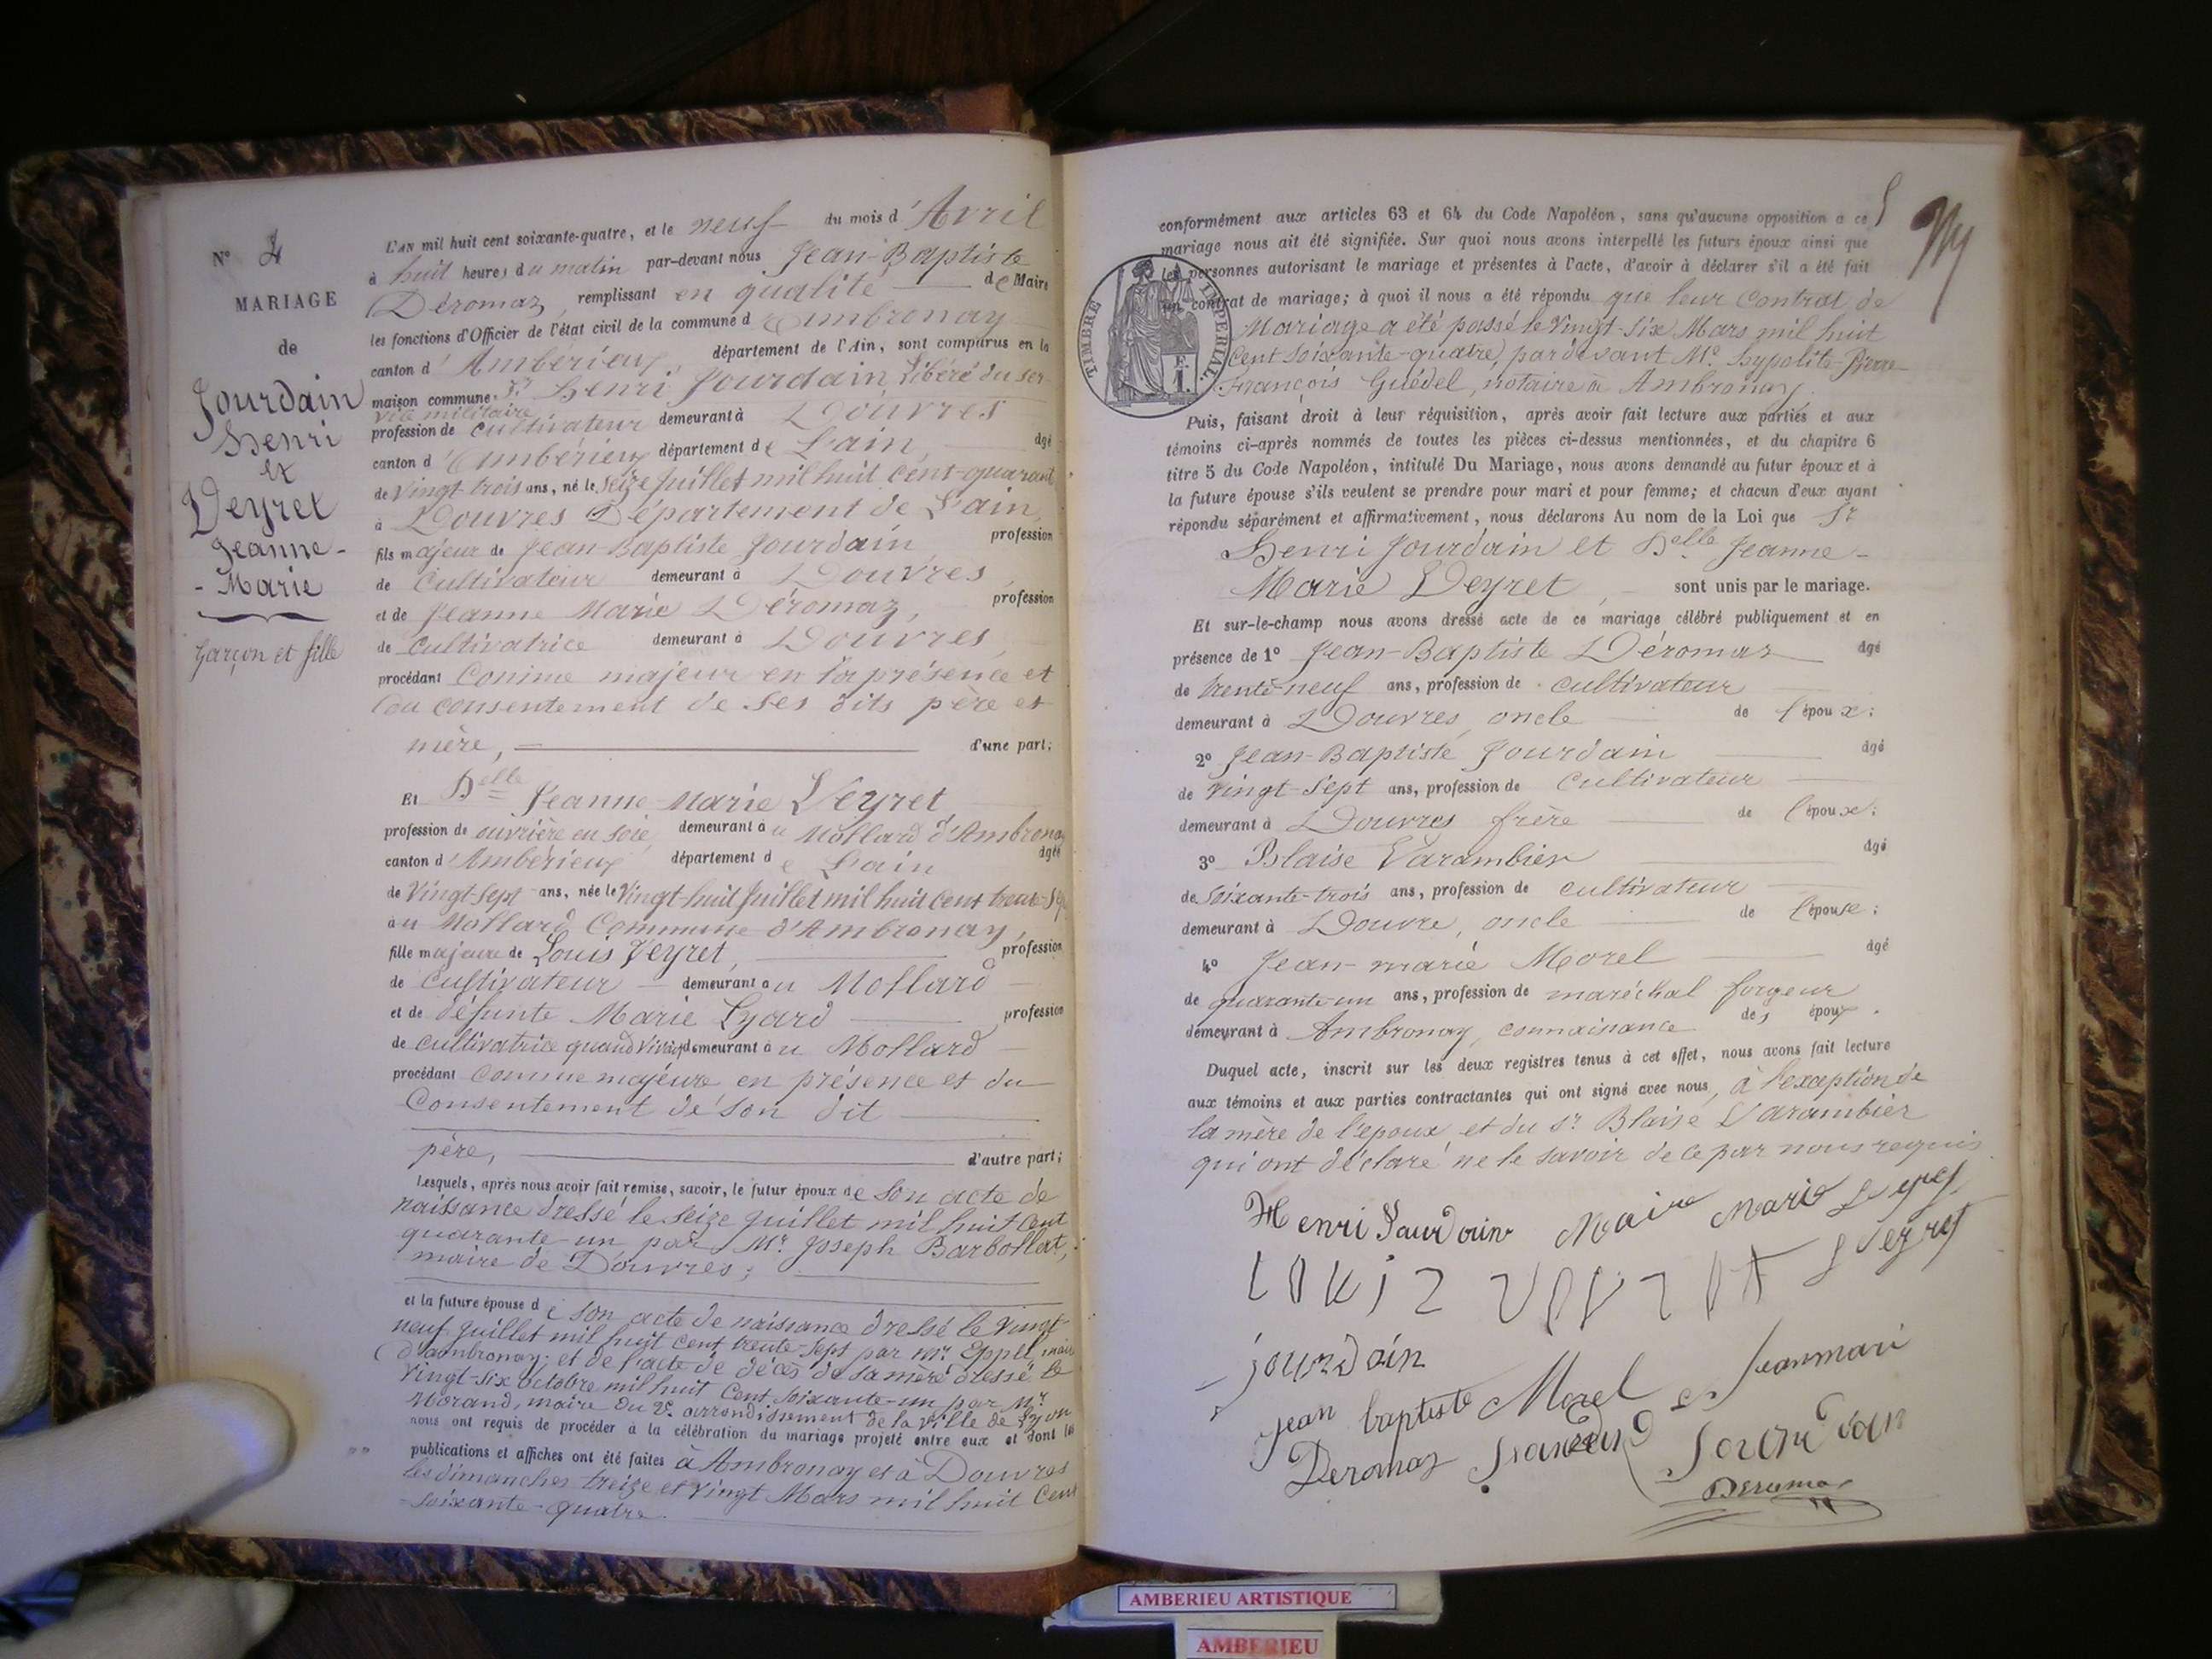 N° 4
MARIAGE
de
Jourdain
Henri
et
Veyret
Jeanne-
-Marie
garçon et fille
L'AN mil huit cent soixante-quatre, et le neuf du mois d'Avril
à huit heures du matin par-devant nous Jean-Baptiste
Déromaz, remplissant en qualité de Maire
les fonctions d'Officier de l'état civil de la commune d'Ambronay
canton d'Ambérieux, département de l'Ain, sont comparus en la
maison commune Sr Henri Jourdain, libéré du ser
vice militaire
profession de cultivateur demeurant à Douvres
canton d'Ambérieux département de L'ain, âgé
de vingt-trois ans, né le seize Juillet mil huit cent-quarant
à Douvres Département de L'ain,
fils majeur de Jean-Baptiste Jourdain, profession
de Cultivateur demeurant à Douvres,
et de Jeanne Marie Déromaz, profession
de cultivatrice demeurant à Douvres,
procédant comme majeur en la présence et
du consentement de ses dits père et
mère, d'une part;
Et Delle Jeanne-Marie Veyret
profession de ouvrière en soie, demeurant au Mollard d'Ambronay
canton d'Ambérieux département de L'ain âgée
de vingt-sept ans, née le vingt-huit Juillet mil huit cent trente-sept
au Mollard Commune d'Ambronay,
fille majeure de Louis Veyret, profession
de Cultivateur demeurant au Mollard
et de défunte Marie Lyard profession
de cultivatrice quand vivait demeurant au Mollard
procédant comme majeure en présence et du
Consentement de son dit
père, d'autre part;
Lesquels, après nous avoir fait remise, savoir, le futur époux de son acte de
naissance dressé le seize juillet mil huit cent
quarante-un par Mr Joseph Barbollat,
maire de Douvres;
et la future épouse de son acte de naissance dressé le vingt-
neuf juillet mil huit cent trente-sept par Mr Eppel, maire
d'ambronay; et de l'acte de décès de sa mère dressé le
vingt-six octobre mil huit cent soixante-un par Mr
Morand, maire du 2e arrondissement de la ville de Lyon
nous ont requis de procéder à la célébration du mariage projeté entre eux et dont les
publications et affiches ont été faites à Ambronay et à Douvres
les dimanches treize et vingt Mars mil huit cent
-soixante-quatre.
5
conformément aux articles 63 et 64 du Code Napoléon, sans qu'aucune opposition a ce
mariage nous ait été signifiée. Sur quoi nous avons interpellé les futurs époux ainsi que
les personnes autorisant le mariage et présentes à l'acte, d'avoir à déclarer s'il a été fait
un contrat de mariage; à quoi il nous a été répondu que leur contrat de
Mariage a été passé le vingt-six Mars mil huit
cent soixante-quatre, pardevant Me hypolite-Pierre-
François Guédel, notaire à Ambronay.
TIMBRE IMPÉRIAL
F.
1.
Puis, faisant droit à leur réquisition, après avoir fait lecture aux parties et aux
témoins ci-après nommés de toutes les pièces ci-dessus mentionnées, et du chapitre 6
titre 5 du Code Napoléon, intitulé Du Mariage, nous avons demandé au futur époux et à
la future épouse s'ils veulent se prendre pour mari et pour femme; et chacun d'eux ayant
répondu séparément et affirmativement, nous déclarons Au nom de la Loi que Sr
Henri Jourdain et Delle Jeanne-
Marie Veyret, sont unis par le mariage.
Et sur-le-champ nous avons dressé acte de ce mariage célébré publiquement et en
présence de 1° Jean-Baptiste Déromaz âgé
de trente-neuf ans, profession de cultivateur
demeurant à Douvres, oncle de l'époux;
2° Jean-Baptiste Jourdain âgé
de vingt-sept ans, profession de Cultivateur
demeurant à Douvres frère de l'époux;
3° Blaise Varambier âgé
de soixante-trois ans, profession de cultivateur
demeurant à Douvre, oncle de l'épouse;
4° Jean-marie Morel âgé
de quarante-un ans, profession de maréchal forgeur
demeurant à Ambronay, connaisance des époux.
Duquel acte, inscrit sur les deux registres tenus à cet effet, nous avons fait lecture
aux témoins et aux parties contractantes qui ont signé avec nous, à l'exception de
la mère de l'époux, et du sr Blaise Varambier
qui ont déclaré ne le savoir de ce par nous requis.
Henri Jourdain Marie
jourdain
jean baptiste Morel Jeanmari
Deromaz
AMBERIEU ARTISTIQUE
AMBERIEU